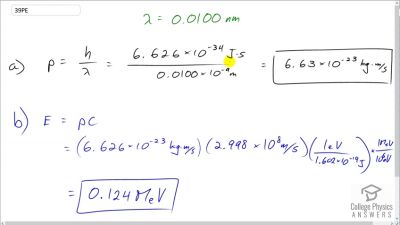 39PE
λ = 0.0100 nm
a) p = h/λ = 6.626×10⁻³⁴ J·s / 0.0100×10⁻⁹ m = 6.63×10⁻²³ kg·m/s
b) E = pc
= (6.626×10⁻²³ kg m/s)(2.998×10⁸ m/s)(1eV/1.602×10⁻¹⁹J) · 1MeV/10⁶eV
= 0.124 MeV
College Physics
ANSWERS